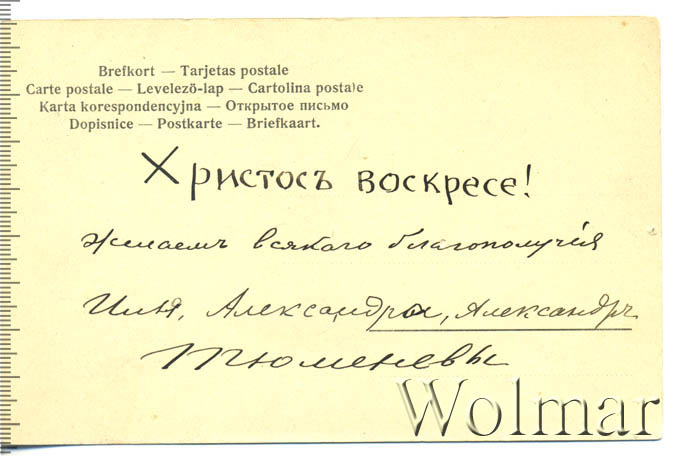 Brefkort — Tarjetas postale
Carte postale — Levelezö-lap — Cartolina postale
Karta korespondencyjna — Открытое письмо
Dopisnice — Postkarte — Briefkaart.
Христосъ воскресе!
желаемъ всякаго благополучія
Илія, Александра, Александръ
Тюменевы
Wolmar